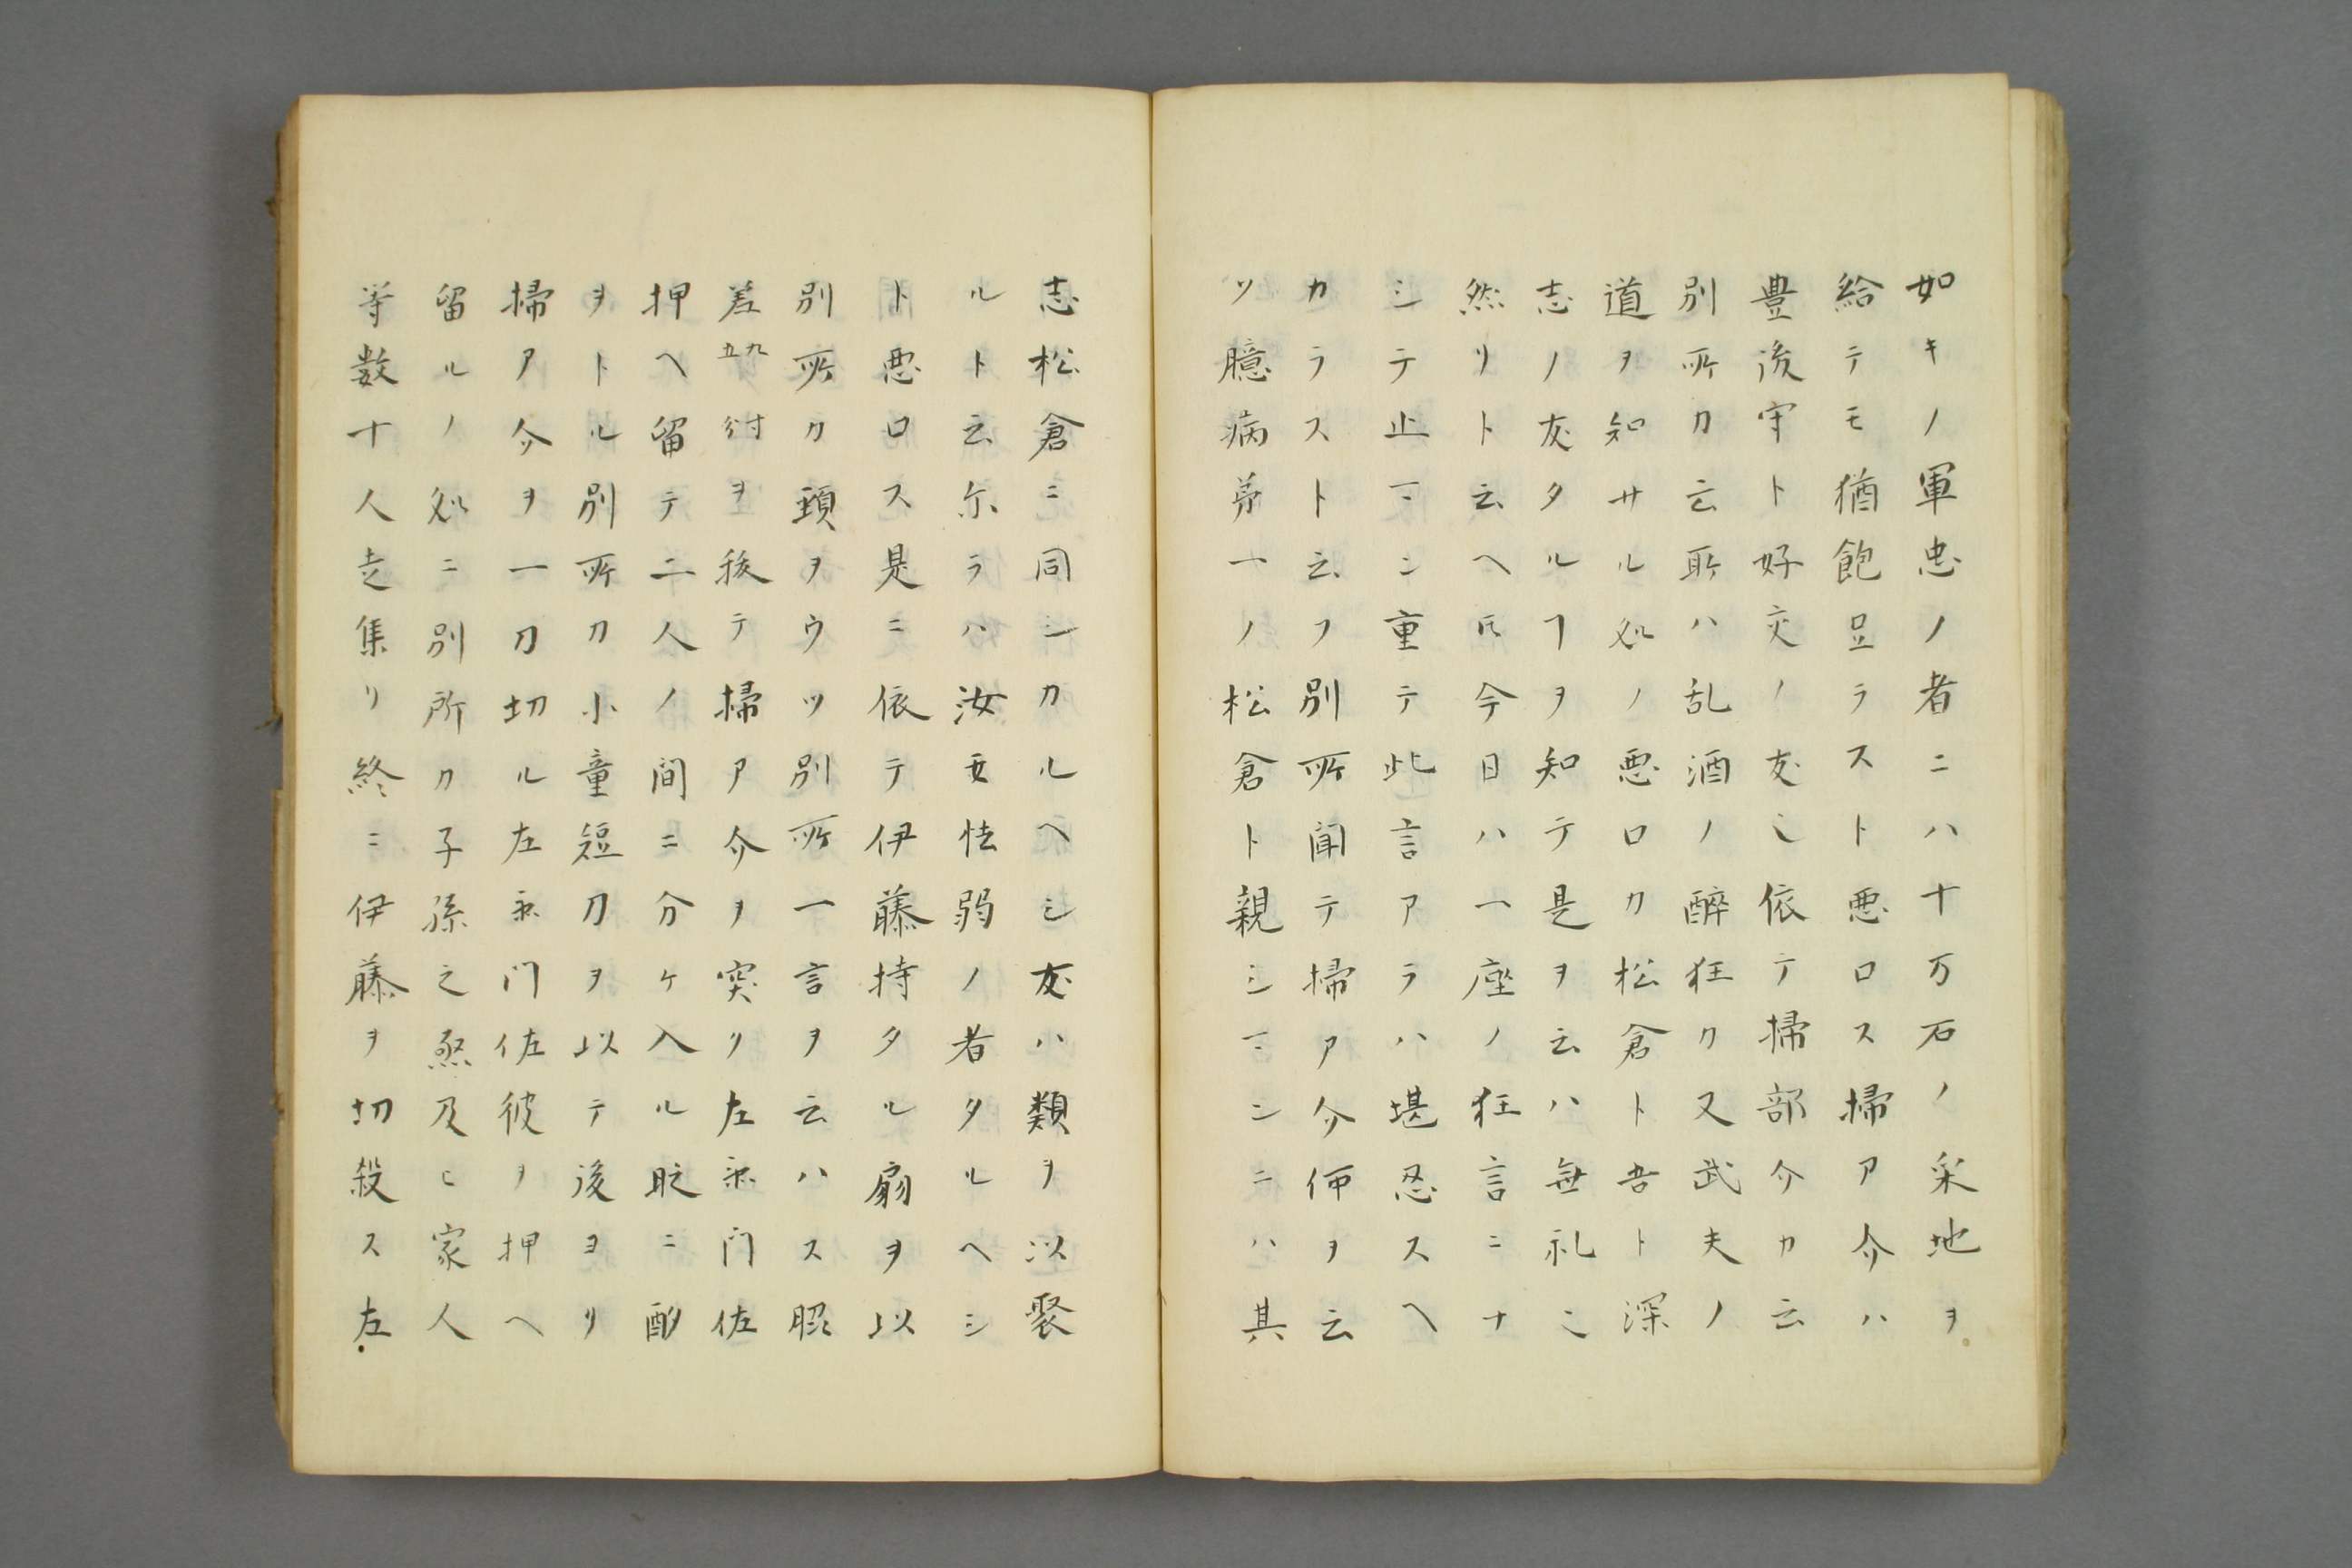 如キノ軍忠ノ者ニハ十万石ノ采地ヲ
給テモ猶飽足ラスト悪口ス掃ア介ハ
豊後守ト好交ノ友也依テ掃部介カ云
別所カ云所ハ乱酒ノ酔狂カ又武夫ノ
道ヲ知サル処ノ悪口カ松倉ト吾ト深
志ノ友タルヿヲ知テ是ヲ云ハ無礼也
然リト云ヘ𪜈今日ハ一座ノ狂言ニナ
シテ止ヘシ重テ此言アラハ堪忍スヘ
カラスト云フ別所聞テ掃ア介何ヲ云
ツ臆病第一ノ松倉ト親シマンニハ其
志松倉ニ同シカルヘシ友ハ類ヲ以聚
ルト云尓ラハ汝モ怯弱ノ者タルヘシ
ト悪口ス是ニ依テ伊藤持タル扇ヲ以
別所カ頭ヲウツ別所一言ヲ云ハス脇
差九五分ヲ抜テ掃ア介ヲ突リ左衛門佐
押ヘ留テ二人ノ間ニ分ケ入ル時ニ酌
ヲトル別所カ小童短刀ヲ以テ後ヨリ
掃ア介ヲ一刀切ル左衛門佐彼ヲ押ヘ
留ルノ処ニ別所カ子孫之丞及ヒ家人
等数十人走集リ終ニ伊藤ヲ切殺ス左